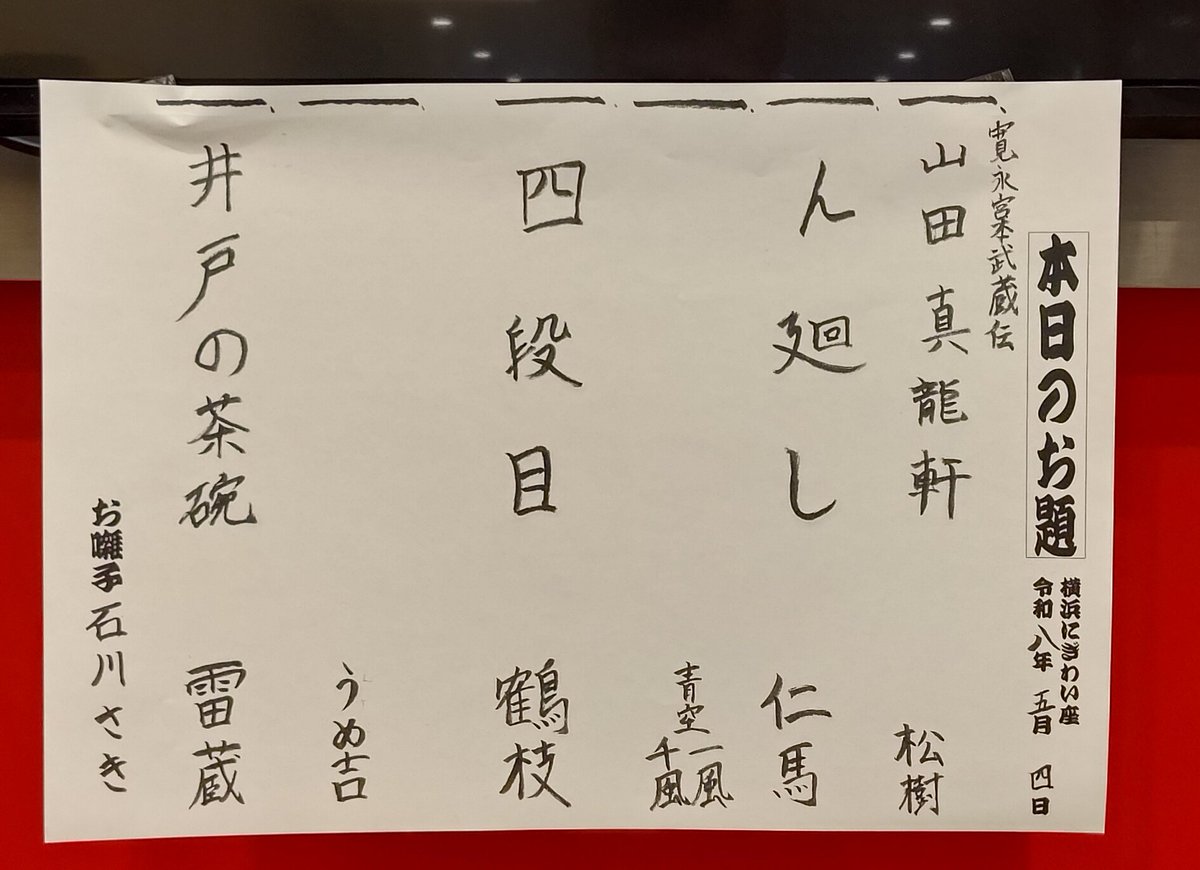 本日のお題
横浜にぎわい座
令和八年 五月 四日
一、寛永宮本武蔵伝
山田真龍軒 松樹
一、ん廻し 仁馬
一、青空 一風 千風
一、四段目 鶴枝
一、うめ吉
一、井戸の茶碗 雷蔵
お囃子 石川さき